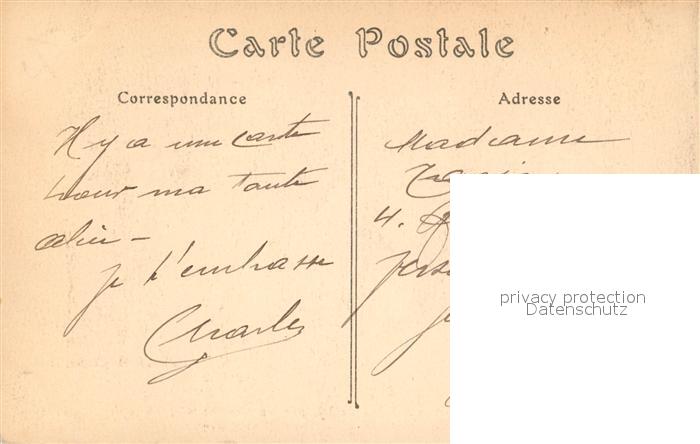 Carte Postale
Correspondance
Il y a une carte
pour ma tante
je t'embrasse
Charles
Adresse
Madame
4.
privacy protection
Datenschutz